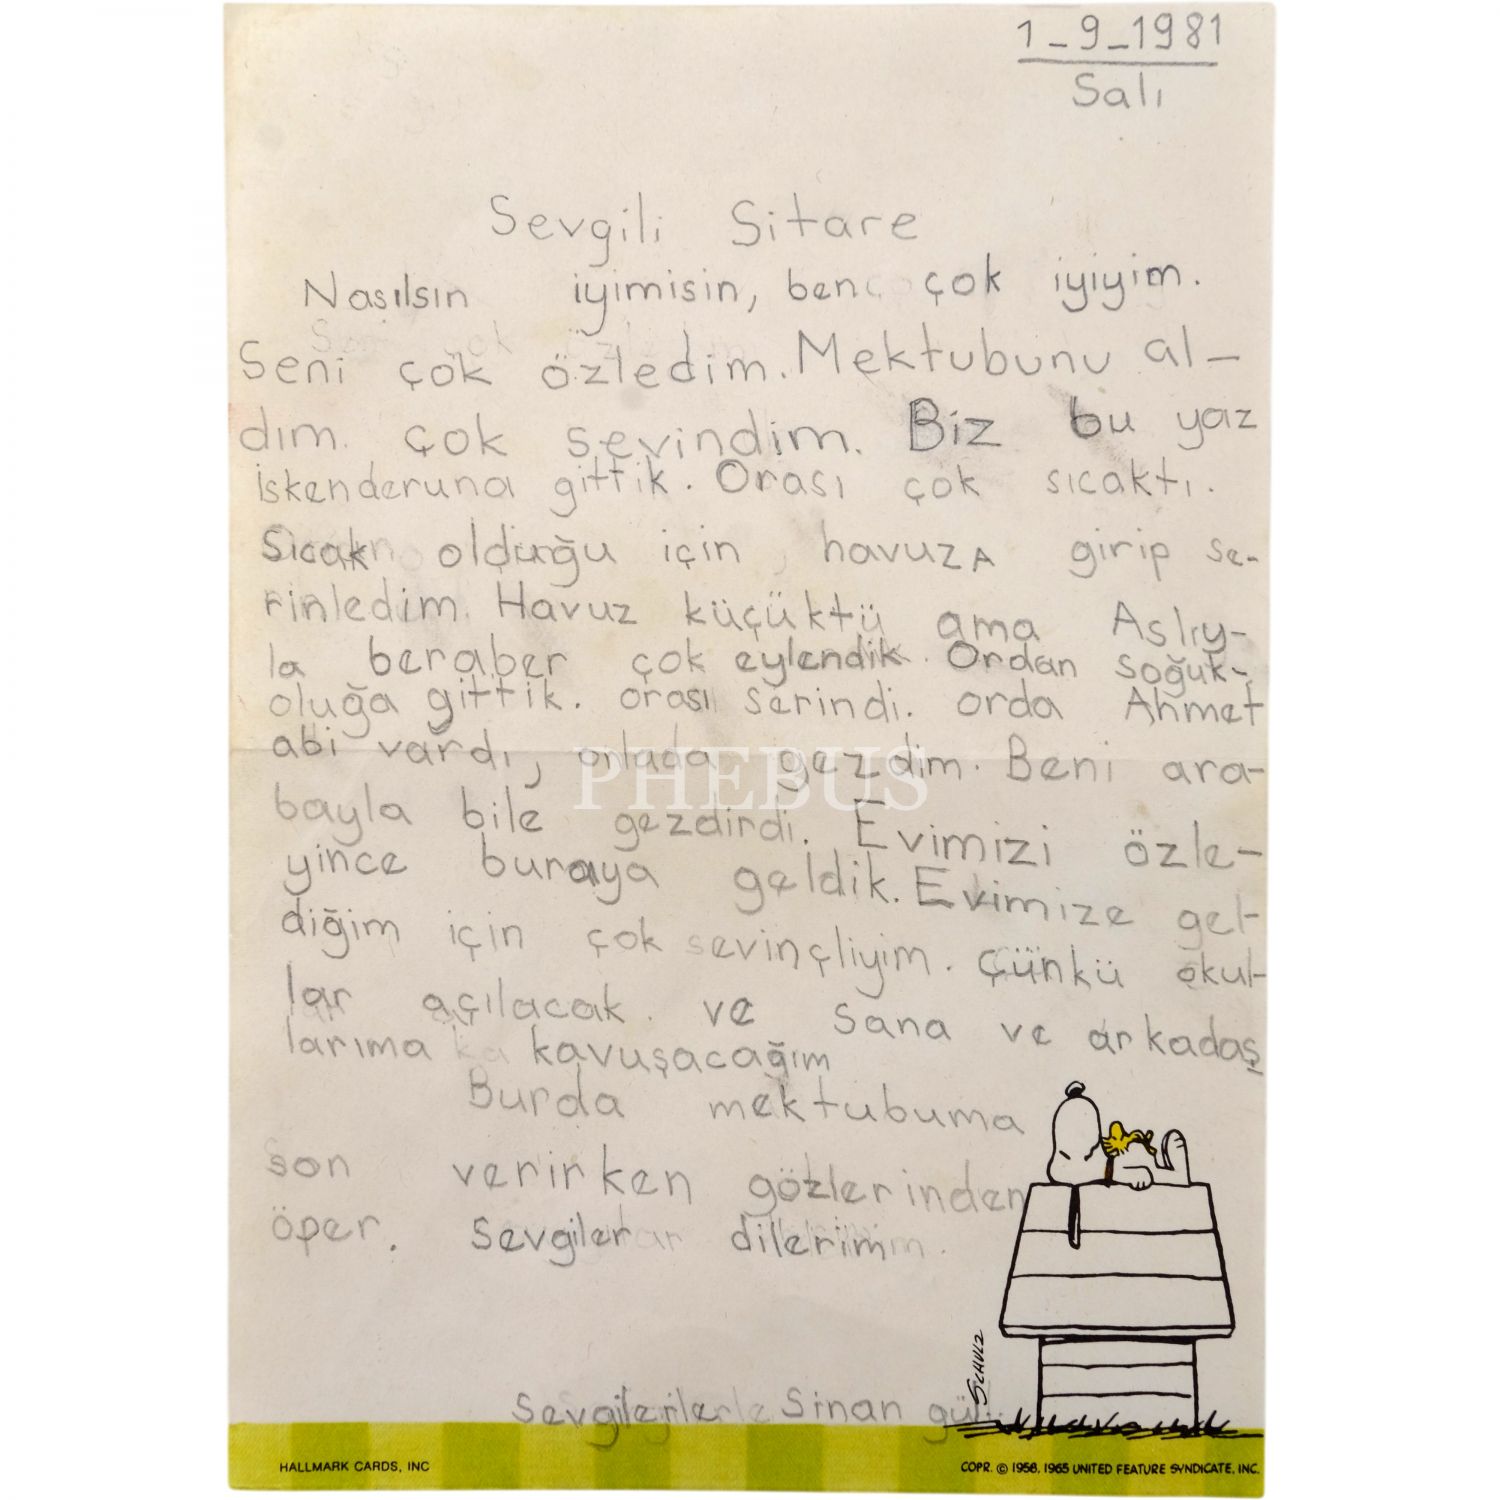 1_9_1981
Salı
Sevgili Sitare
Nasılsın iyimisin, ben çok iyiyim.
Seni çok özledim. Mektubunu al-
dım. çok sevindim. Biz bu yaz
iskenderuna gittik. Orası çok sıcaktı.
Sıcak olduğu için, havuza girip se-
rinledim. Havuz küçüktü ama Aslıy-
la beraber çok eylendik. Ordan soğuk-
oluğa gittik. orası serindi. orda Ahmet
abi vardı, onlada gezdim. Beni ara-
PHEBUS
bayla bile gezdirdi. Evimizi özle-
yince buraya geldik. Evimize gel-
diğim için çok sevinçliyim. çünkü okul-
lar açılacak. ve sana ve arkadaş
larıma kavuşacağım
Burda mektubuma
son verirken gözlerinden
öper. sevgiler dilerim.
SCHULZ
Sevgilerle Sinan gül
HALLMARK CARDS, INC
COPR. © 1958, 1965 UNITED FEATURE SYNDICATE, INC.